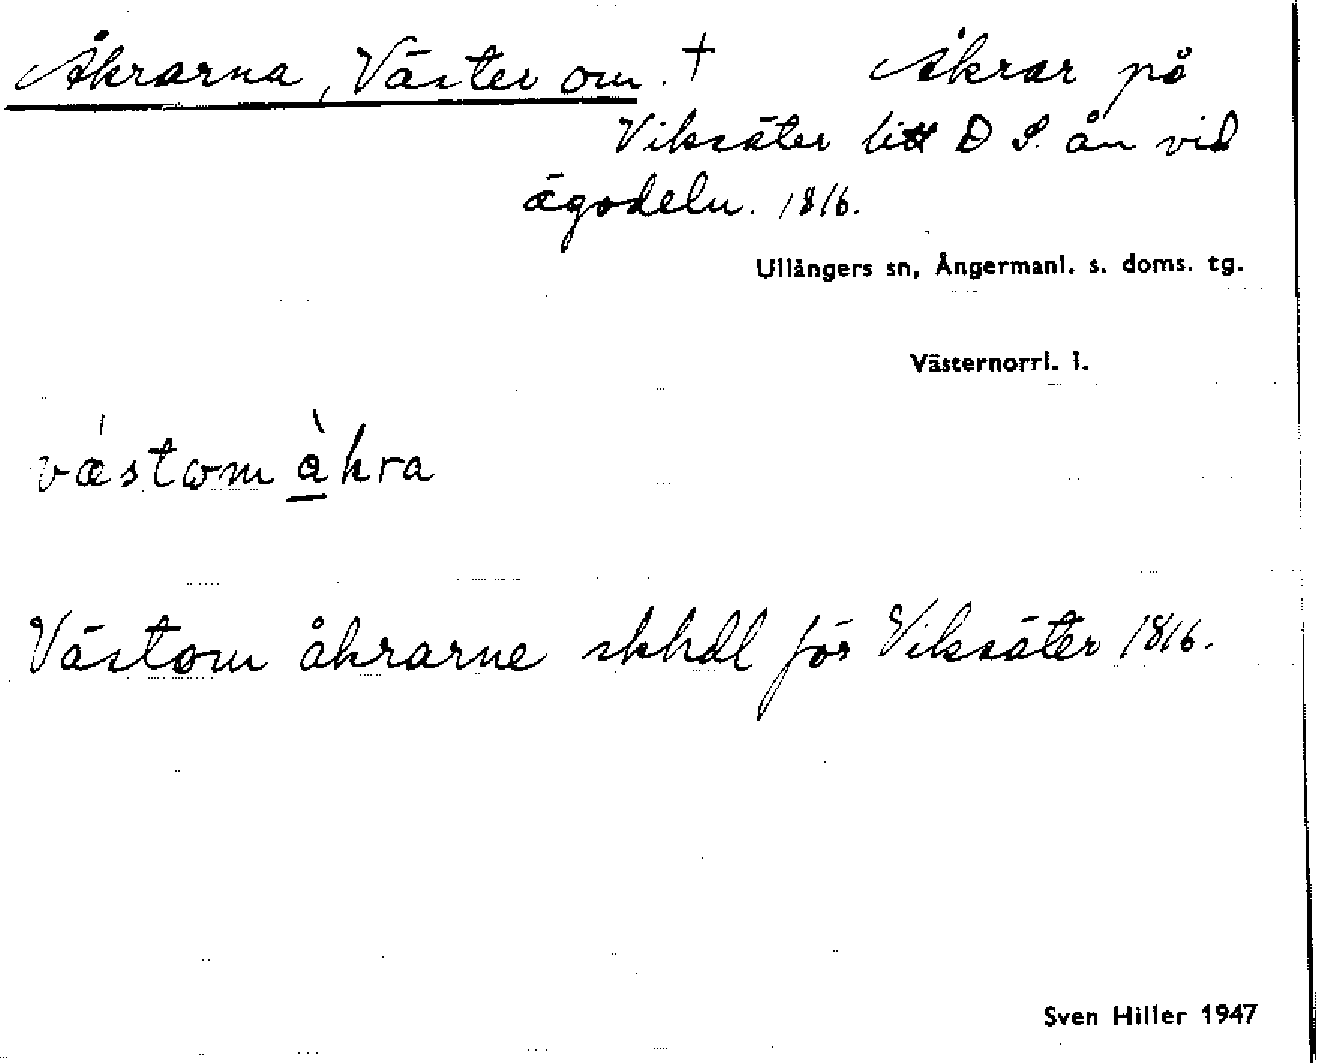 Åkrarna, Väster om. † Åkrar på
Viksäter litt D S. ån vid
ägodeln. 1816.
Ullångers sn, Ångermanl. s. doms. tg.
Västernorrl. l.
vǽstɷm å̀kra
Västom åkrarne skhdl för Viksäter 1816.
Sven Hiller 1947